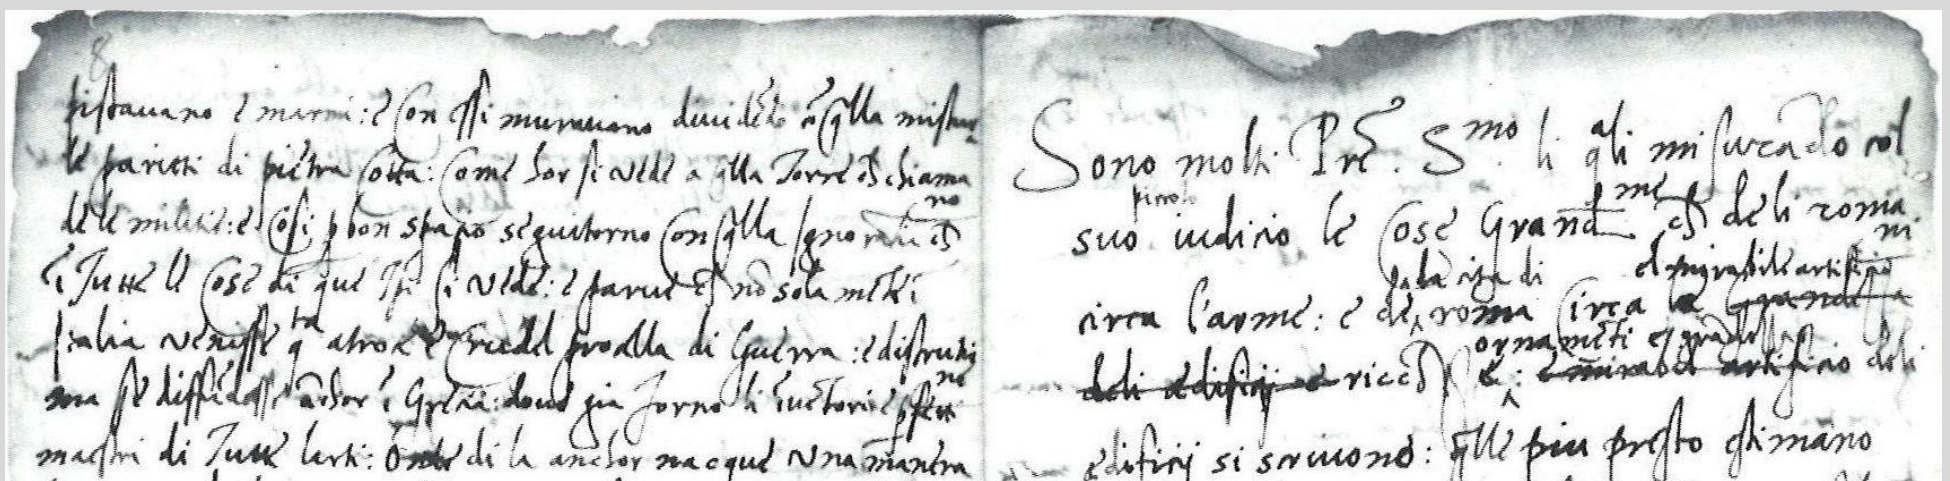 8
pistavano e marmi: e con essi muravano divide͂do cõ q̃lla mistura
le parieti di pietra cotta: come hor si vede a q̃lla Torre ch̃ chiamano
de le militie: e cosi p bon spatio seguitorno con q̃lla ignorantia ch̃
ĩ Tutte le cose di que Tpi si vede: e parve ch̃ nõ solamente ĩ
Italia venisse q̃ta atroce e crudel procella di Guerra: e distrutione
ma se diffũdesse ãchor ĩ Grecia: dove gia forno li ĩvẽtori e pfetti
mastri di Tutte larti: Onde di la anchor nacque una manera
Sono molti Prẽ. Smo. li q̃ali misurãdo col
suo piccolo iudicio le cose Grandme ch̃ de li romani
circa l'arme: e de la cita di roma circa el mirabile artificio
deli edificij e ricch̃ ornamẽti e grãdeza e: e mirabel artificio deli
edificij si scrivono: q̃lle piu presto estimano